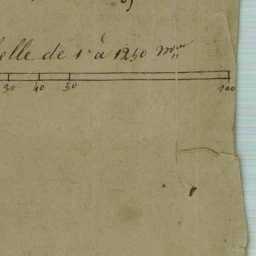 elle de 1 à 1250 m
30 40 50 100